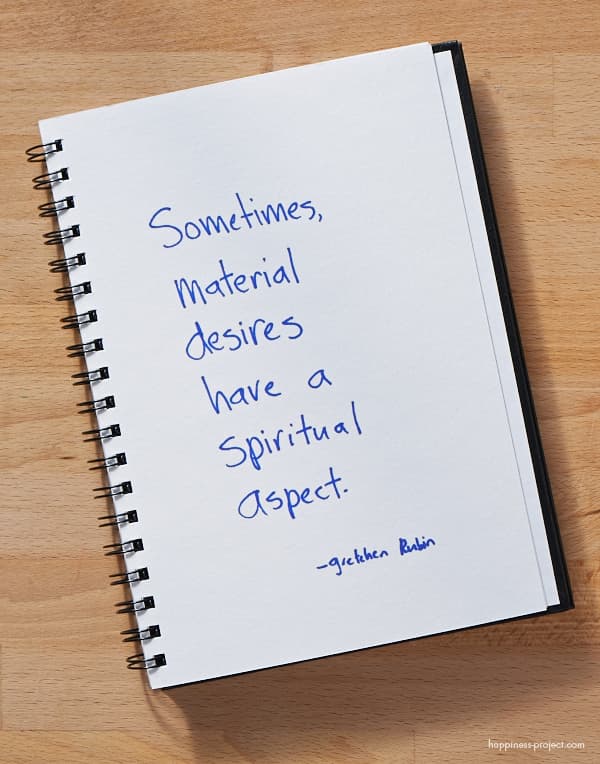 Sometimes,
material
desires
have a
spiritual
aspect.
-gretchen Rubin
happiness-project.com